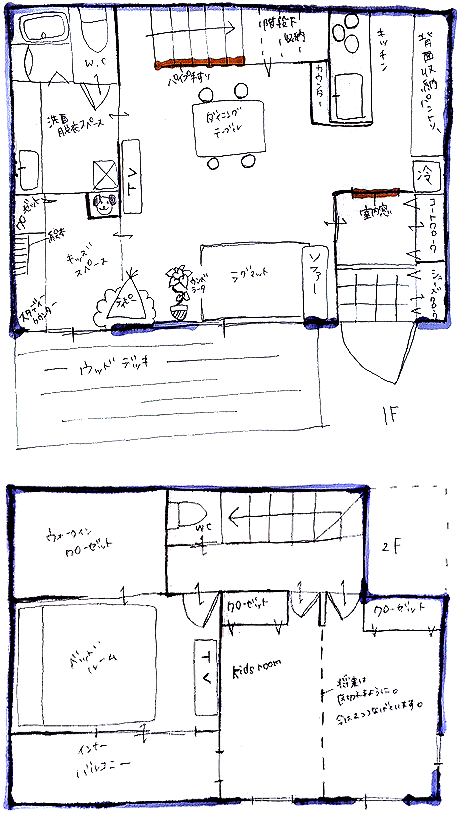 W.C
階段下
収納
キッチン
背面収納パントリー
パイプ手すり
カウンター
ダイニング
テーブル
洗面
脱衣スペース
TV
冷
クローゼット
絵本
キッズ
スペース
室内窓
コートCLO
シューズCLO
ラグマット
ソファー
スタディー
カウンター
ウッドデッキ
1F
ウォークイン
クローゼット
WC
2F
クローゼット
クローゼット
ベッド
ルーム
TV
kids room
将来は
区切れるように。
今は2つつなげています。
インナー
バルコニー